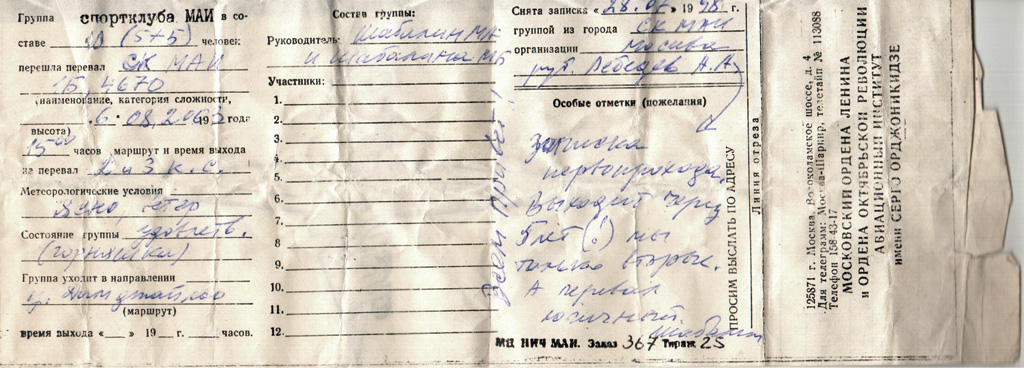 Группа спортклуба МАИ в со-
ставе 10 (5+5) человек
перешла перевал СК МАИ
1Б, 4670
(наименование, категория сложности,
6.08.2003 года
высота)
15 00 часов маршрут и время выхода
на перевал 2 и 3 к.с.
Метеорологические условия
Ясно ветер
Состояние группы удовлетв.
(горняшка)
Группа уходит в направлении
(маршрут)
время выхода «__» 19__ г.__ часов.
Состав группы:
Руководитель: Шабалин МЮ
и Шабалина МБ
Участники:
1.
2.
3.
4.
5.
6.
7.
8
9.
10.
11.
12.
Всем привет!
Снята записка «28.07» 1998 г.
группой из города СК МАИ
организации Москва
рук. Лебедев А.А.
Особые отметки (пожелания)
Записка
первопрохода.
Выходит через
5 лет (!) мы
только вторые.
А перевал
логичный.
МП НИЧ МАИ. Заказ 367 Тираж 25
ПРОСИМ ВЫСЛАТЬ ПО АДРЕСУ
Линия отреза
125871 г. Москва, Волоколамское шоссе, д. 4
Для телеграмм: Москва-Шарнир, телетайп № 113088
Телефон 158-43-17
МОСКОВСКИЙ ОРДЕНА ЛЕНИНА
и ОРДЕНА ОКТЯБРЬСКОЙ РЕВОЛЮЦИИ
АВИАЦИОННЫЙ ИНСТИТУТ
имени СЕРГО ОРДЖОНИКИДЗЕ